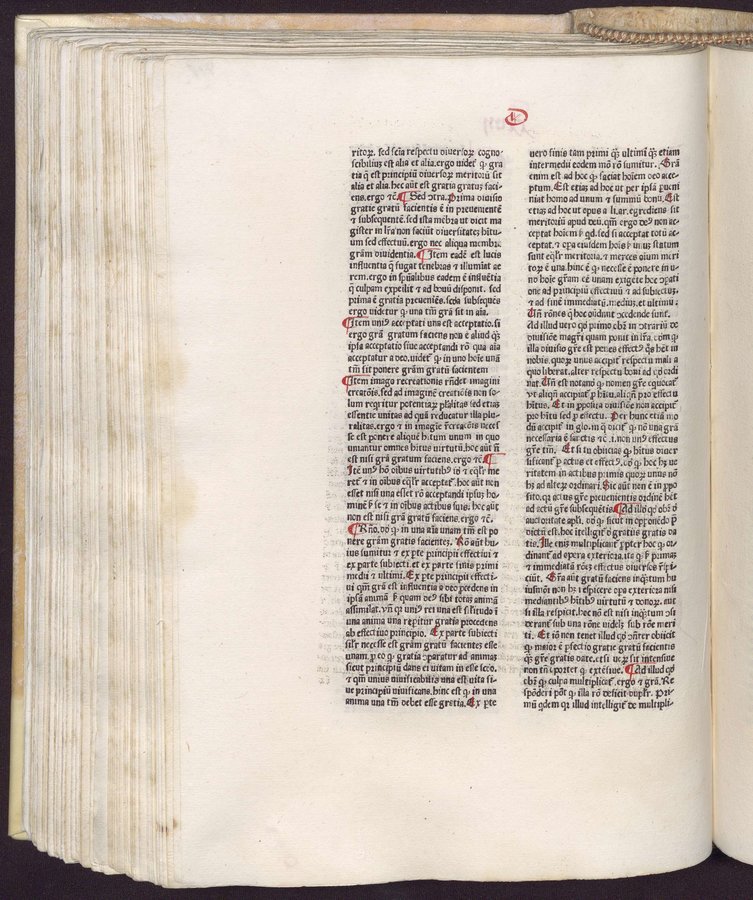 D
ritoꝝ. sed scia respectu diuersoꝝ cogno-
scibiliuꝫ est alia et alia. ergo videt ꝙ gra
tia q̄ est principiū diuersoꝝ meritorū sit
alia et alia. hec aūt est gratia gratuꝫ faci
ens. ergo ⁊c̄ ¶ Sed ↄtra. Prima diuisio
gratie gratū facientis ē in preuenientē
⁊ subsequentē. sed ista mēbra ut dicit ma
gister in lr̄a non faciūt diuersitateꝫ hītu-
um sed effectuū. ergo nec aliqua membra
grām diuidentia. ¶ Item eadē est lucis
influentia q̄ fugat tenebras ⁊ illumīat ae
rem. ergo in spūalibus eadem ē influētia
q̄ culpam expellit ⁊ ad bonū disponit. sed
prima ē gratia preueniēs. secūda subsequēs
ergo videtur ꝙ una tm̄ grā sit in aīa.
¶ Item uniꝰ acceptati una est acceptatio. si
ergo grā gratum faciens non ē aliud qꝫ
ipsa acceptatio siue acceptandi rō qua aīa
acceptatur a deo. videt ꝙ in uno hoīe unā
tm̄ sit ponere grām gratū facientem
¶ Item imago recreationis rn̄det imagini
creatōis. sed ad imaginē creatiōis non so-
lum reqritur potentiaꝝ plalitas sed etiaꝫ
essentie unitas ad quā reducatur illa plu-
ralitas. ergo ⁊ in imagīe recreatiōis necesse
se est ponere aliquē hitum unum in quo
uniantur omnes hitus virtutū. hoc aūt nō
est nisi grā gratum faciens. ergo ⁊c̄ ¶
Itē unꝰ hō oībus virtutibꝰ is ⁊ eqlr̄ me
ret ⁊ in oībus eqlr̄ acceptat. hoc aūt non
esset nisi una esset rō acceptandi ipsuꝫ ho-
minē ꝑ se ⁊ in oībus actibus suis. hoc aūt
non est nisi grā gratū faciens. ergo ⁊c̄.
¶ Rn̄o. dōꝫ ꝙ in una aīa unam tm̄ est po
nere grām gratis facienteꝫ. Rō aūt hu
ius sumitur ⁊ ex pte principii effectiui ⁊
ex parte subiecti. et ex parte finis primi
medii ⁊ ultimi. Ex pte principii effecti-
ui qm̄ grā est influentia a deo ꝓcedens in
ipsā animā ꝑ quam deꝰ sibi totaꝫ animā
assimilat. vn̄ qꝛ uniꝰ rei una est silitudo ī
una anima una repitur gratia procedens
ab effectiuo principio. Ex parte subiecti
silr̄ necesse est grām gratū facienteꝫ esse
unam. ꝓ eo ꝙ gratia ↄparatur ad animaꝫ
sicut principiū dans ei vitam in esse secō.
⁊ qm̄ unius viuificabilis una est vita si-
ue principiū viuificans. hinc est ꝙ in una
anima una tm̄ debet esse gratia. Ex pte
uero finis tam primi qꝫ ultimi qꝫ etiam
intermedii eodem mō rō sumitur. Grā
enim est ad hoc ꝙ faciat hoīem deo acce-
ptum. Est etiaꝫ ad hoc ut per ipsā ꝑueni
niat homo ad unum ⁊ summū bonū. Est
etiaꝫ ad hoc ut opus a li. ar. egrediens sit
meritoriū apud deū. qm̄ ergo deꝰ non ac-
ceptat hoīem ꝑ qd. sed si acceptat totū ac-
ceptat. ⁊ oꝑa eiusdem hoīs ī unuꝫ statum
sunt eqlr̄ meritoria. ⁊ merces oīum meri
toꝝ ē una. hinc ē ꝙ necesse ē ponere in u-
no hoīe grām cē unam exigēte hoc ↄpati
one ad principiū effectiuū ⁊ ad subiectuꝫ.
⁊ ad finē immediatū. mediuꝫ. et ultimū.
Un̄ rōnes q̄ hoc oñdunt ↄcedende sunt.
Ad illud uero qꝫ primo obʒ in ↄtrariū de
diuisiōe magrī quam ponit in lr̄a. dōm ꝙ
illa diuisio gr̄e est penes effectꝰ qs hēt in
nobis. quoꝝ unus accipit respectu mali a
quo liberat. alter respectu boni ad qd ordi
nat. Un̄ est notandū ꝙ nomen gr̄e equocat
vt aliqn̄ accipiat ꝑ hītu. aliqn̄ ꝓ effectu
hītus. Et in ꝓposita diuisiōe non accipit
pro hītu sed ꝓ effectu. Per hunc etiā mo
dū accipit in glo. in q dicit ꝙ nō una grā
necessaria ē sāctis ⁊c̄. i. non unꝰ effectus
gr̄e tm̄. Et si tu obiicias ꝙ hitus diuer
sificant ꝑ actus et effectꝰ. dō ꝙ hoc hʒ ue
ritatem in actibus primis quoꝝ unus nō
hʒ ad alteꝝ ordinari. Sic aūt non ē in ꝓpo
sito. qꝛ actus gr̄e preuenientis ordinē hēt
ad actū gr̄e subsequētis. ¶ Ad illō qꝫ obʒ d
auctoritate apli. dō ꝙ sicut in opponēdo ꝑ
dictū est. hoc intelligit d gratiis gratis da
tis. Ille eniꝫ multiplicant ꝓpter hoc ꝙ or
dinant ad opera exteriora. ita ꝙ ꝑ primaꝫ
⁊ immediatā rōeꝫ effectus diuersos respi-
ciūt. Grā aūt gratū faciens inqꝫtum hu
iusmōi non hʒ respicere oꝑa exteriora nisi
mediantibꝰ hītibꝰ virtutū ⁊ donoꝝ. aut
si illa respicit. hoc nō est nisi inqꝫtum ↄsi
derant sub una rōne videlꝫ sub rōe meri
ti. Et iō non tenet illud qꝫ ↄn̄ter obiicit
ꝙ maior ē ꝑfectio gratie gratū facientis
qꝫ gr̄e gratis date. et si ueꝝ sit intensiue
non tn̄ oportet ꝙ extēsiue. ¶ Ad illud qꝫ
obʒ ꝙ culpa multiplicat. ergo ⁊ grā. Re
spōderi pōt ꝙ illa rō deficit duplr̄. Pri-
mū qdem qꝛ illud intelligit de multipli-